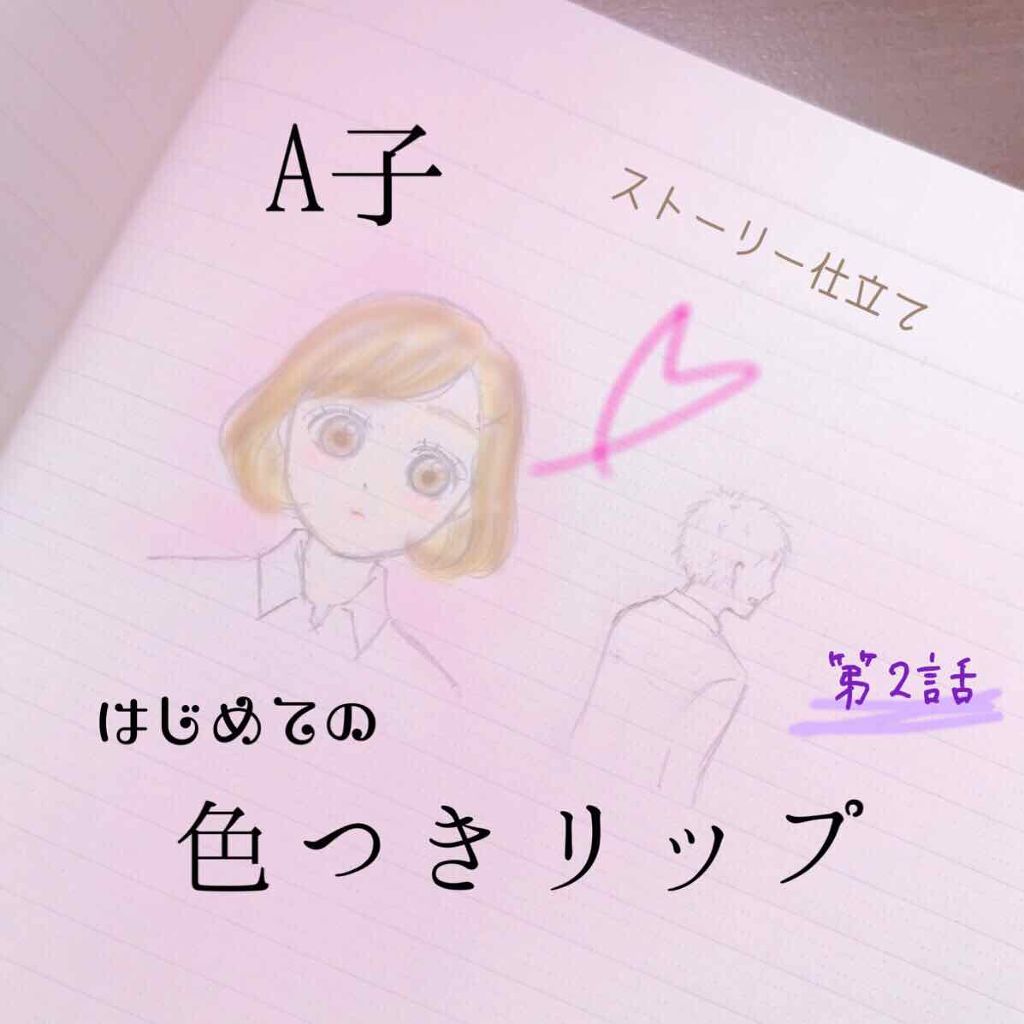 A子
ストーリー仕立て
第2話
はじめての
色つきリップ